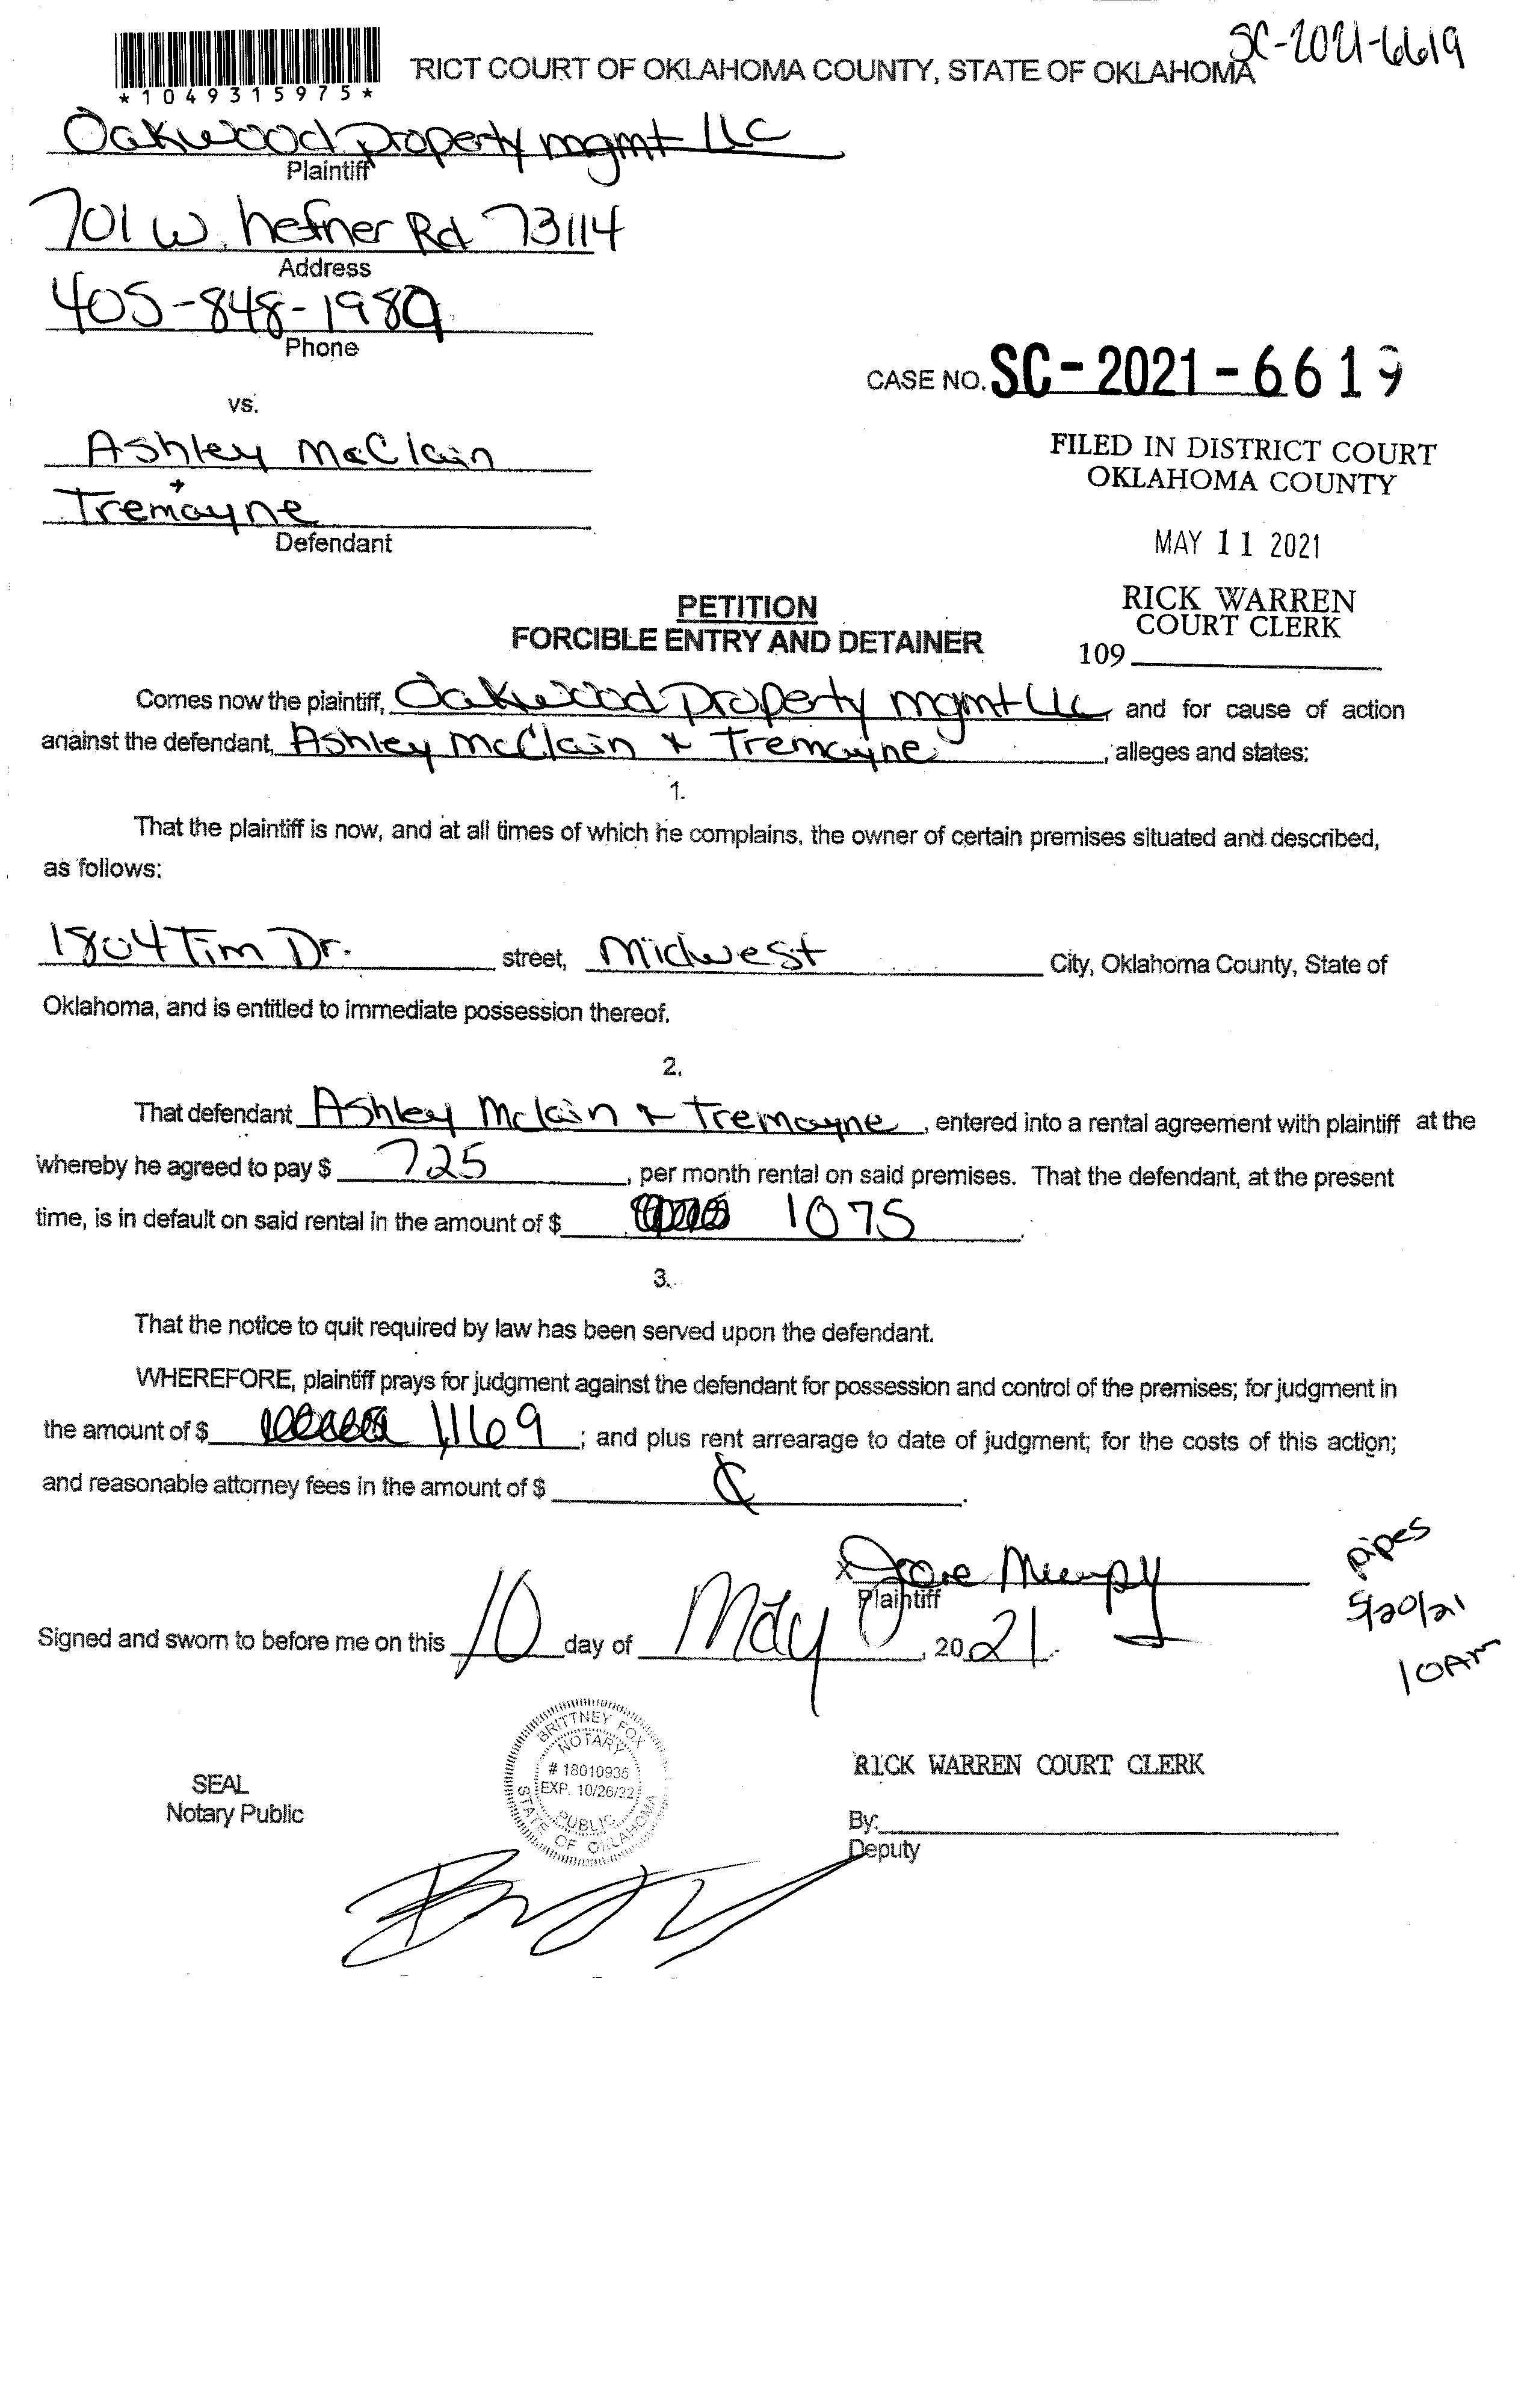 SC-2021-6619
*1049315975*
RICT COURT OF OKLAHOMA COUNTY, STATE OF OKLAHOMA
Oakwood property mgmt LLC
Plaintiff
701 W. hefner Rd 73114
Address
405-848-1989
Phone
CASE NO. SC-2021-6619
vs.
Ashley McClain
+
Tremayne
Defendant
FILED IN DISTRICT COURT
OKLAHOMA COUNTY
MAY 11 2021
RICK WARREN
COURT CLERK
109
PETITION
FORCIBLE ENTRY AND DETAINER
Comes now the plaintiff, Oakwood Property mgmt LLC, and for cause of action
against the defendant, Ashley McClain + Tremayne, alleges and states:
1.
That the plaintiff is now, and at all times of which he complains, the owner of certain premises situated and described,
as follows:
1804 Tim Dr. street, Midwest City, Oklahoma County, State of
Oklahoma, and is entitled to immediate possession thereof.
2.
That defendant Ashley Mclain + Tremayne, entered into a rental agreement with plaintiff at the
whereby he agreed to pay $ 725, per month rental on said premises. That the defendant, at the present
time, is in default on said rental in the amount of $ 1075.
3.
That the notice to quit required by law has been served upon the defendant.
WHEREFORE, plaintiff prays for judgment against the defendant for possession and control of the premises; for judgment in
the amount of $ 1,169; and plus rent arrearage to date of judgment; for the costs of this action;
and reasonable attorney fees in the amount of $
Plaintiff
Signed and sworn to before me on this 10 day of May, 2021.
pipes
5/20/21
10Am
BRITTNEY FOX
NOTARY
# 18010935
EXP. 10/26/22
PUBLIC
STATE OF OKLAHOMA
SEAL
Notary Public
RICK WARREN COURT CLERK
By:
Deputy